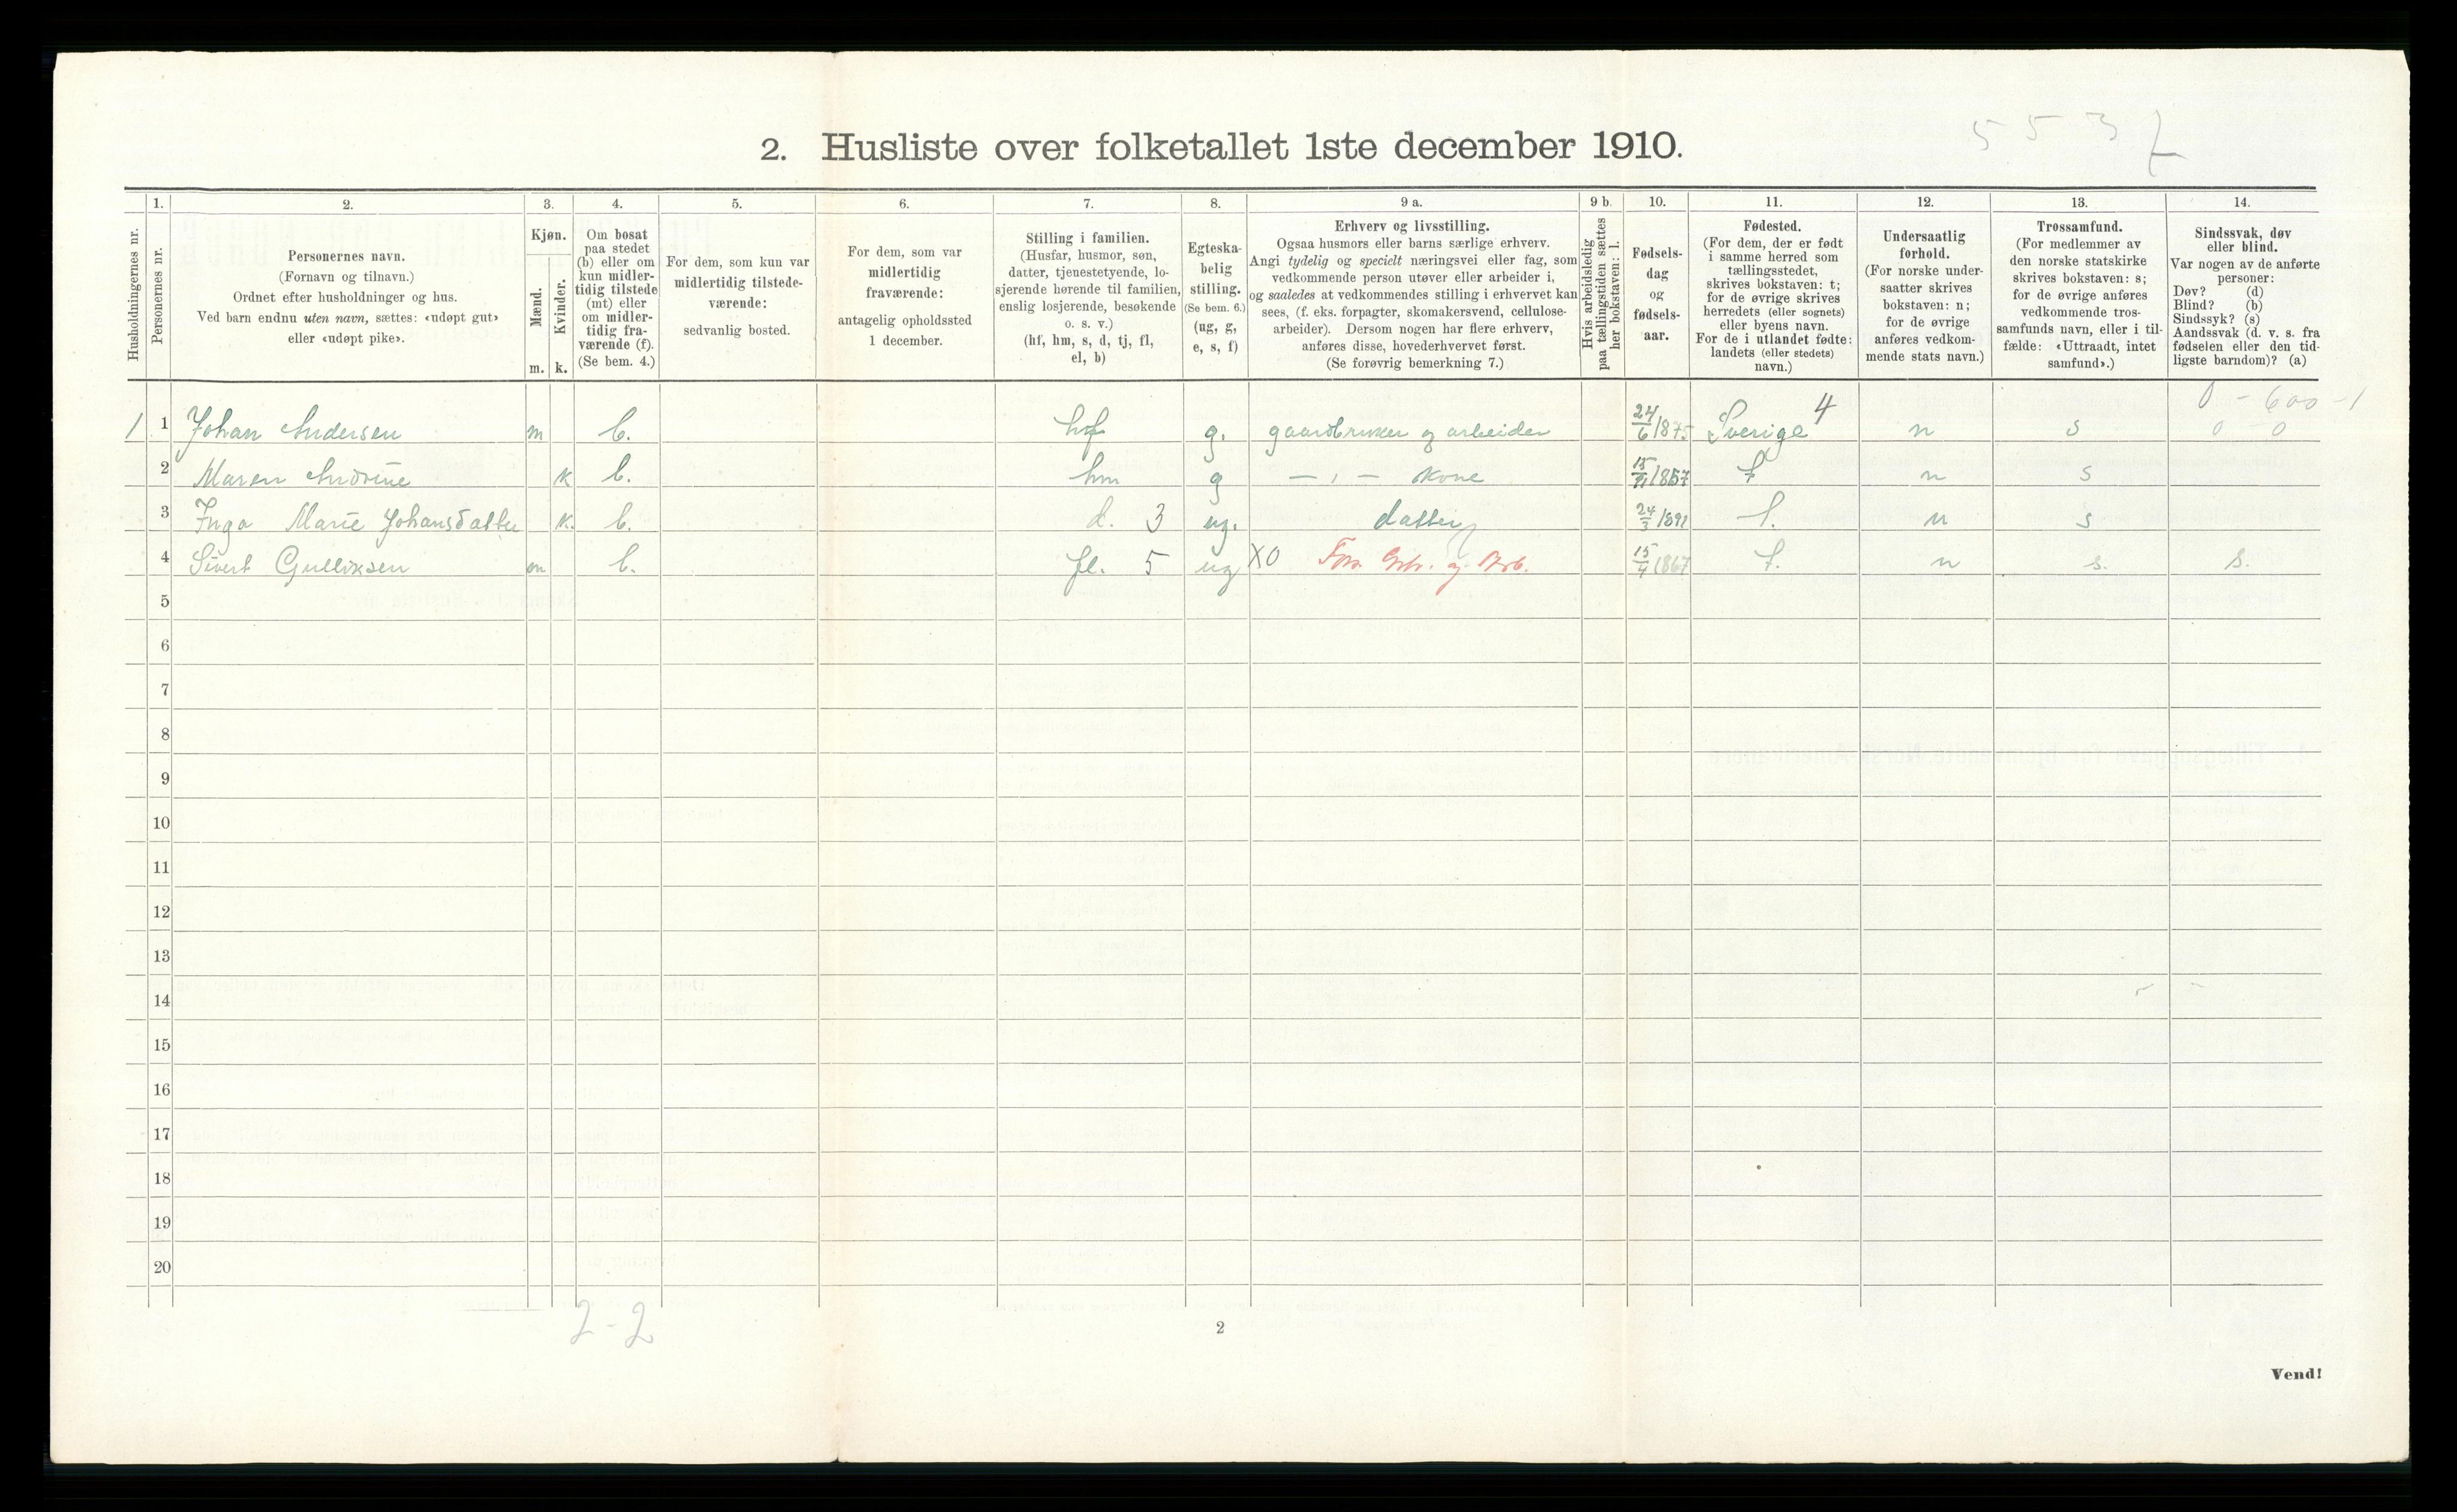 5 5 3 7
2. Husliste over folketallet 1ste december 1910.
Husholdningernes nr.
1. 2. 3. 4. 5. 6. 7. 8. 9 a. 9 b. 10. 11. 12. 13. 14.
Personernes nr.
Personernes navn.
(Fornavn og tilnavn.)
Ordnet efter husholdninger og hus.
Ved barn endnu uten navn, sættes: «udøpt gut»
eller «udøpt pike».
Kjøn.
Mænd.
Kvinder.
m. k.
Om bosat
paa stedet
(b) eller om
kun midler-
tidig tilstede
(mt) eller
om midler-
tidig fra-
værende (f).
(Se bem. 4.)
For dem, som kun var
midlertidig tilstede-
værende:
sedvanlig bosted.
For dem, som var
midlertidig
fraværende:
antagelig opholdssted
1 december.
Stilling i familien.
(Husfar, husmor, søn,
datter, tjenestetyende, lo-
sjerende hørende til familien,
enslig losjerende, besøkende
o. s. v.)
(hf, hm, s, d, tj, fl,
el, b)
Egteska-
belig
stilling.
(Se bem. 6.)
(ug, g,
e, s, f)
Erhverv og livsstilling.
Ogsaa husmors eller barns særlige erhverv.
Angi tydelig og specielt næringsvei eller fag, som
vedkommende person utøver eller arbeider i,
og saaledes at vedkommendes stilling i erhvervet kan
sees, (f. eks. forpagter, skomakersvend, cellulose-
arbeider). Dersom nogen har flere erhverv,
anføres disse, hovederhvervet først.
(Se forøvrig bemerkning 7.)
Hvis arbeidsledig
paa tællingstiden sættes
her bokstaven: l.
Fødsels-
dag
og
fødsels-
aar.
Fødested.
(For dem, der er født
i samme herred som
tællingsstedet,
skrives bokstaven: t;
for de øvrige skrives
herredets (eller sognets)
eller byens navn.
For de i utlandet fødte:
landets (eller stedets)
navn.)
Undersaatlig
forhold.
(For norske under-
saatter skrives
bokstaven: n;
for de øvrige
anføres vedkom-
mende stats navn.)
Trossamfund.
(For medlemmer av
den norske statskirke
skrives bokstaven: s;
for de øvrige anføres
vedkommende tros-
samfunds navn, eller i til-
fælde: «Uttraadt, intet
samfund».)
Sindssvak, døv
eller blind.
Var nogen av de anførte
personer:
Døv? (d)
Blind? (b)
Sindssyk? (s)
Aandssvak (d. v. s. fra
fødselen eller den tid-
ligste barndom)? (a)
4 0 - 600 - 1
1 1 Johan Andersen m b. hf g. gaardbruker og arbeider 24/6 1875 Sverige n s 0 0
2 Maren Andrine k b. hm g — " — kone 15/11 1857 t n s
3 Inga Marie Johansdatter k. b. d. 3 ug. datter 24/3 1891 t. n s
4 Sivert Gulliksen m b. fl. 5 ug X0 Fors. Grbr. og Arb. 15/4 1867 t. n s. s.
5
6
7
8
9
10
11
12
13
14
15
16
17
18
19
20
2 - 2
2
Vend!